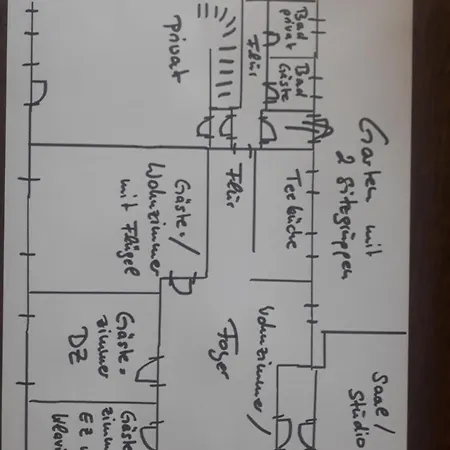 Bad
privat
Bad
Gäste
Flur
Privat
Garten mit
2 Sitzgruppen
Teeküche
Flur
Gäste-/
Wohnzimmer
mit Flügel
Wohnzimmer/
Foyer
Gäste=
zimmer
DZ
Saal/
Studio
Gäste
zim
EZ